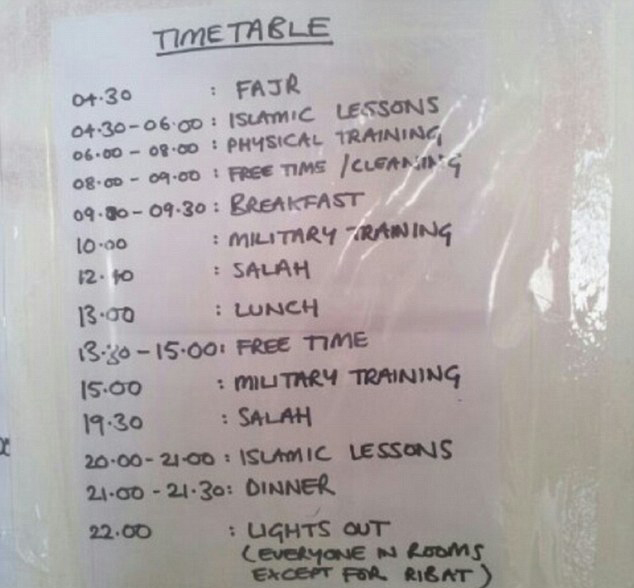 TIMETABLE
04.30 : FAJR
04.30-06.00 : ISLAMIC LESSONS
06.00 - 08.00 : PHYSICAL TRAINING
08.00 - 09.00 : FREE TIME /CLEANING
09.00-09.30 : BREAKFAST
10.00 : MILITARY TRAINING
12.10 : SALAH
13.00 : LUNCH
13.30-15.00: FREE TIME
15.00 : MILITARY TRAINING
19.30 : SALAH
20.00-21.00 : ISLAMIC LESSONS
21.00-21.30: DINNER
22.00 : LIGHTS OUT
(EVERYONE IN ROOMS
EXCEPT FOR RIBAT)